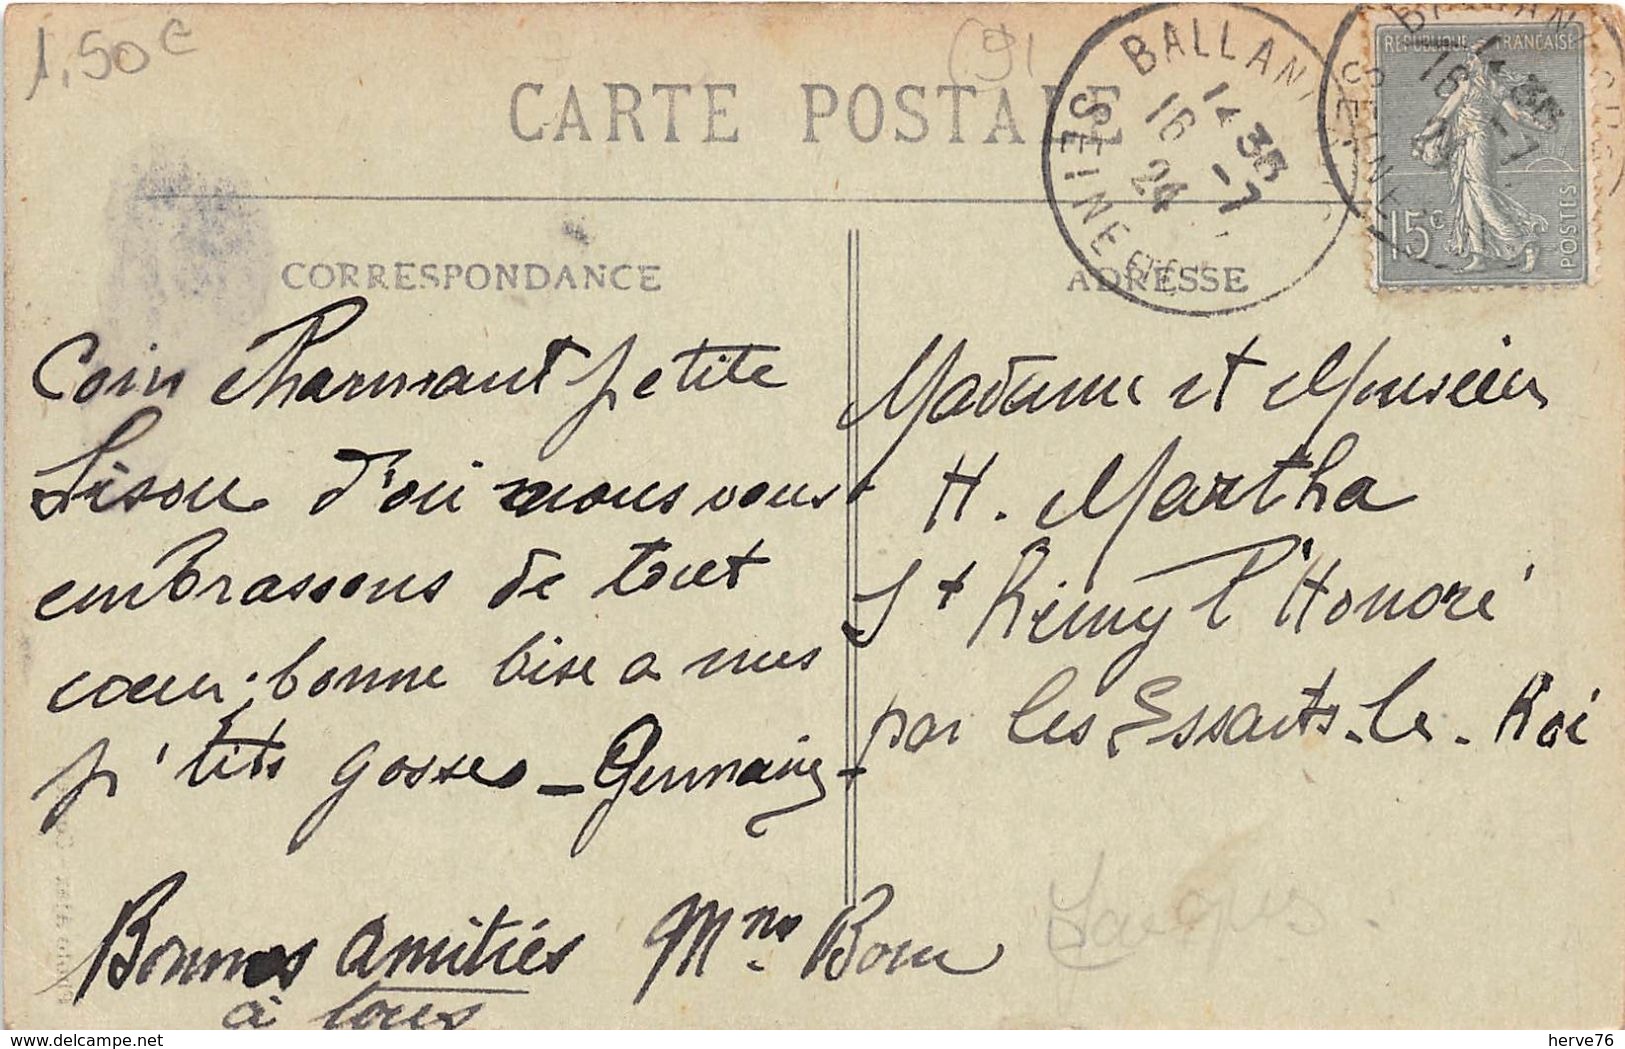 1,50 €
(91
CARTE POSTALE
BALLAN
SEINE ET
14 35
16 -7
24
REPUBLIQUE FRANÇAISE
15c
POSTES
CORRESPONDANCE
Coin charmant petite
Lison d'où nous vous
embrassons de tout
cœur; bonne bise a mes
p'tits gosses - Germaine
Bonnes amitiés Mme Bom
à tous
ADRESSE
Madame et Monsieur
H. Martha
St Rémy l'Honoré
par les Essarts-le-Roi
hervé76
www.delcampe.net